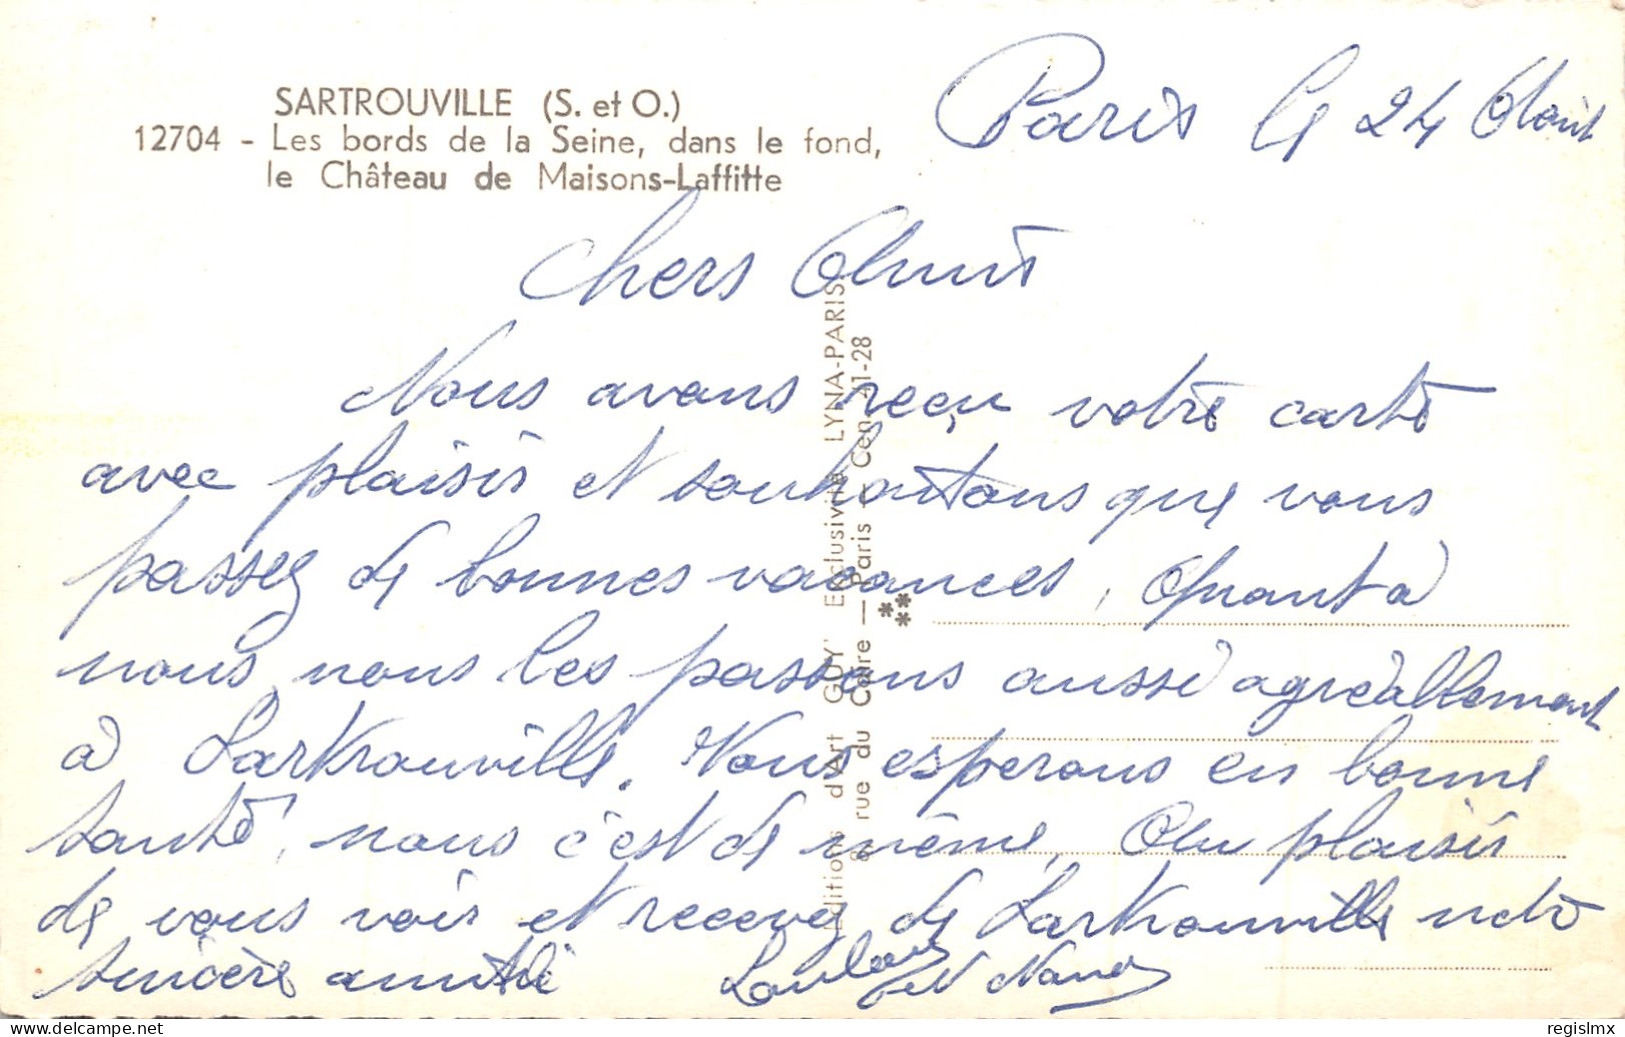 SARTROUVILLE (S. et O.)
12704 - Les bords de la Seine, dans le fond,
le Château de Maisons-Laffitte
Paris le 24 Août
Chers Amis
Nous avons reçu votre carte
avec plaisir et souhaitons que vous
passez de bonnes vacances, Quant à
nous, nous les passons aussi agréablement
à Sartrouville. Vous esperons en bonne
santé, nous c'est de même, Au plaisir
de vous voir et recevez de Sartrouville notre
sincère amitié
Loulou et Nano
Editions d'Art GUY' Exclusivité LYNA-PARIS
8, rue du Caire — Paris — Cen. 41-28
regislmx